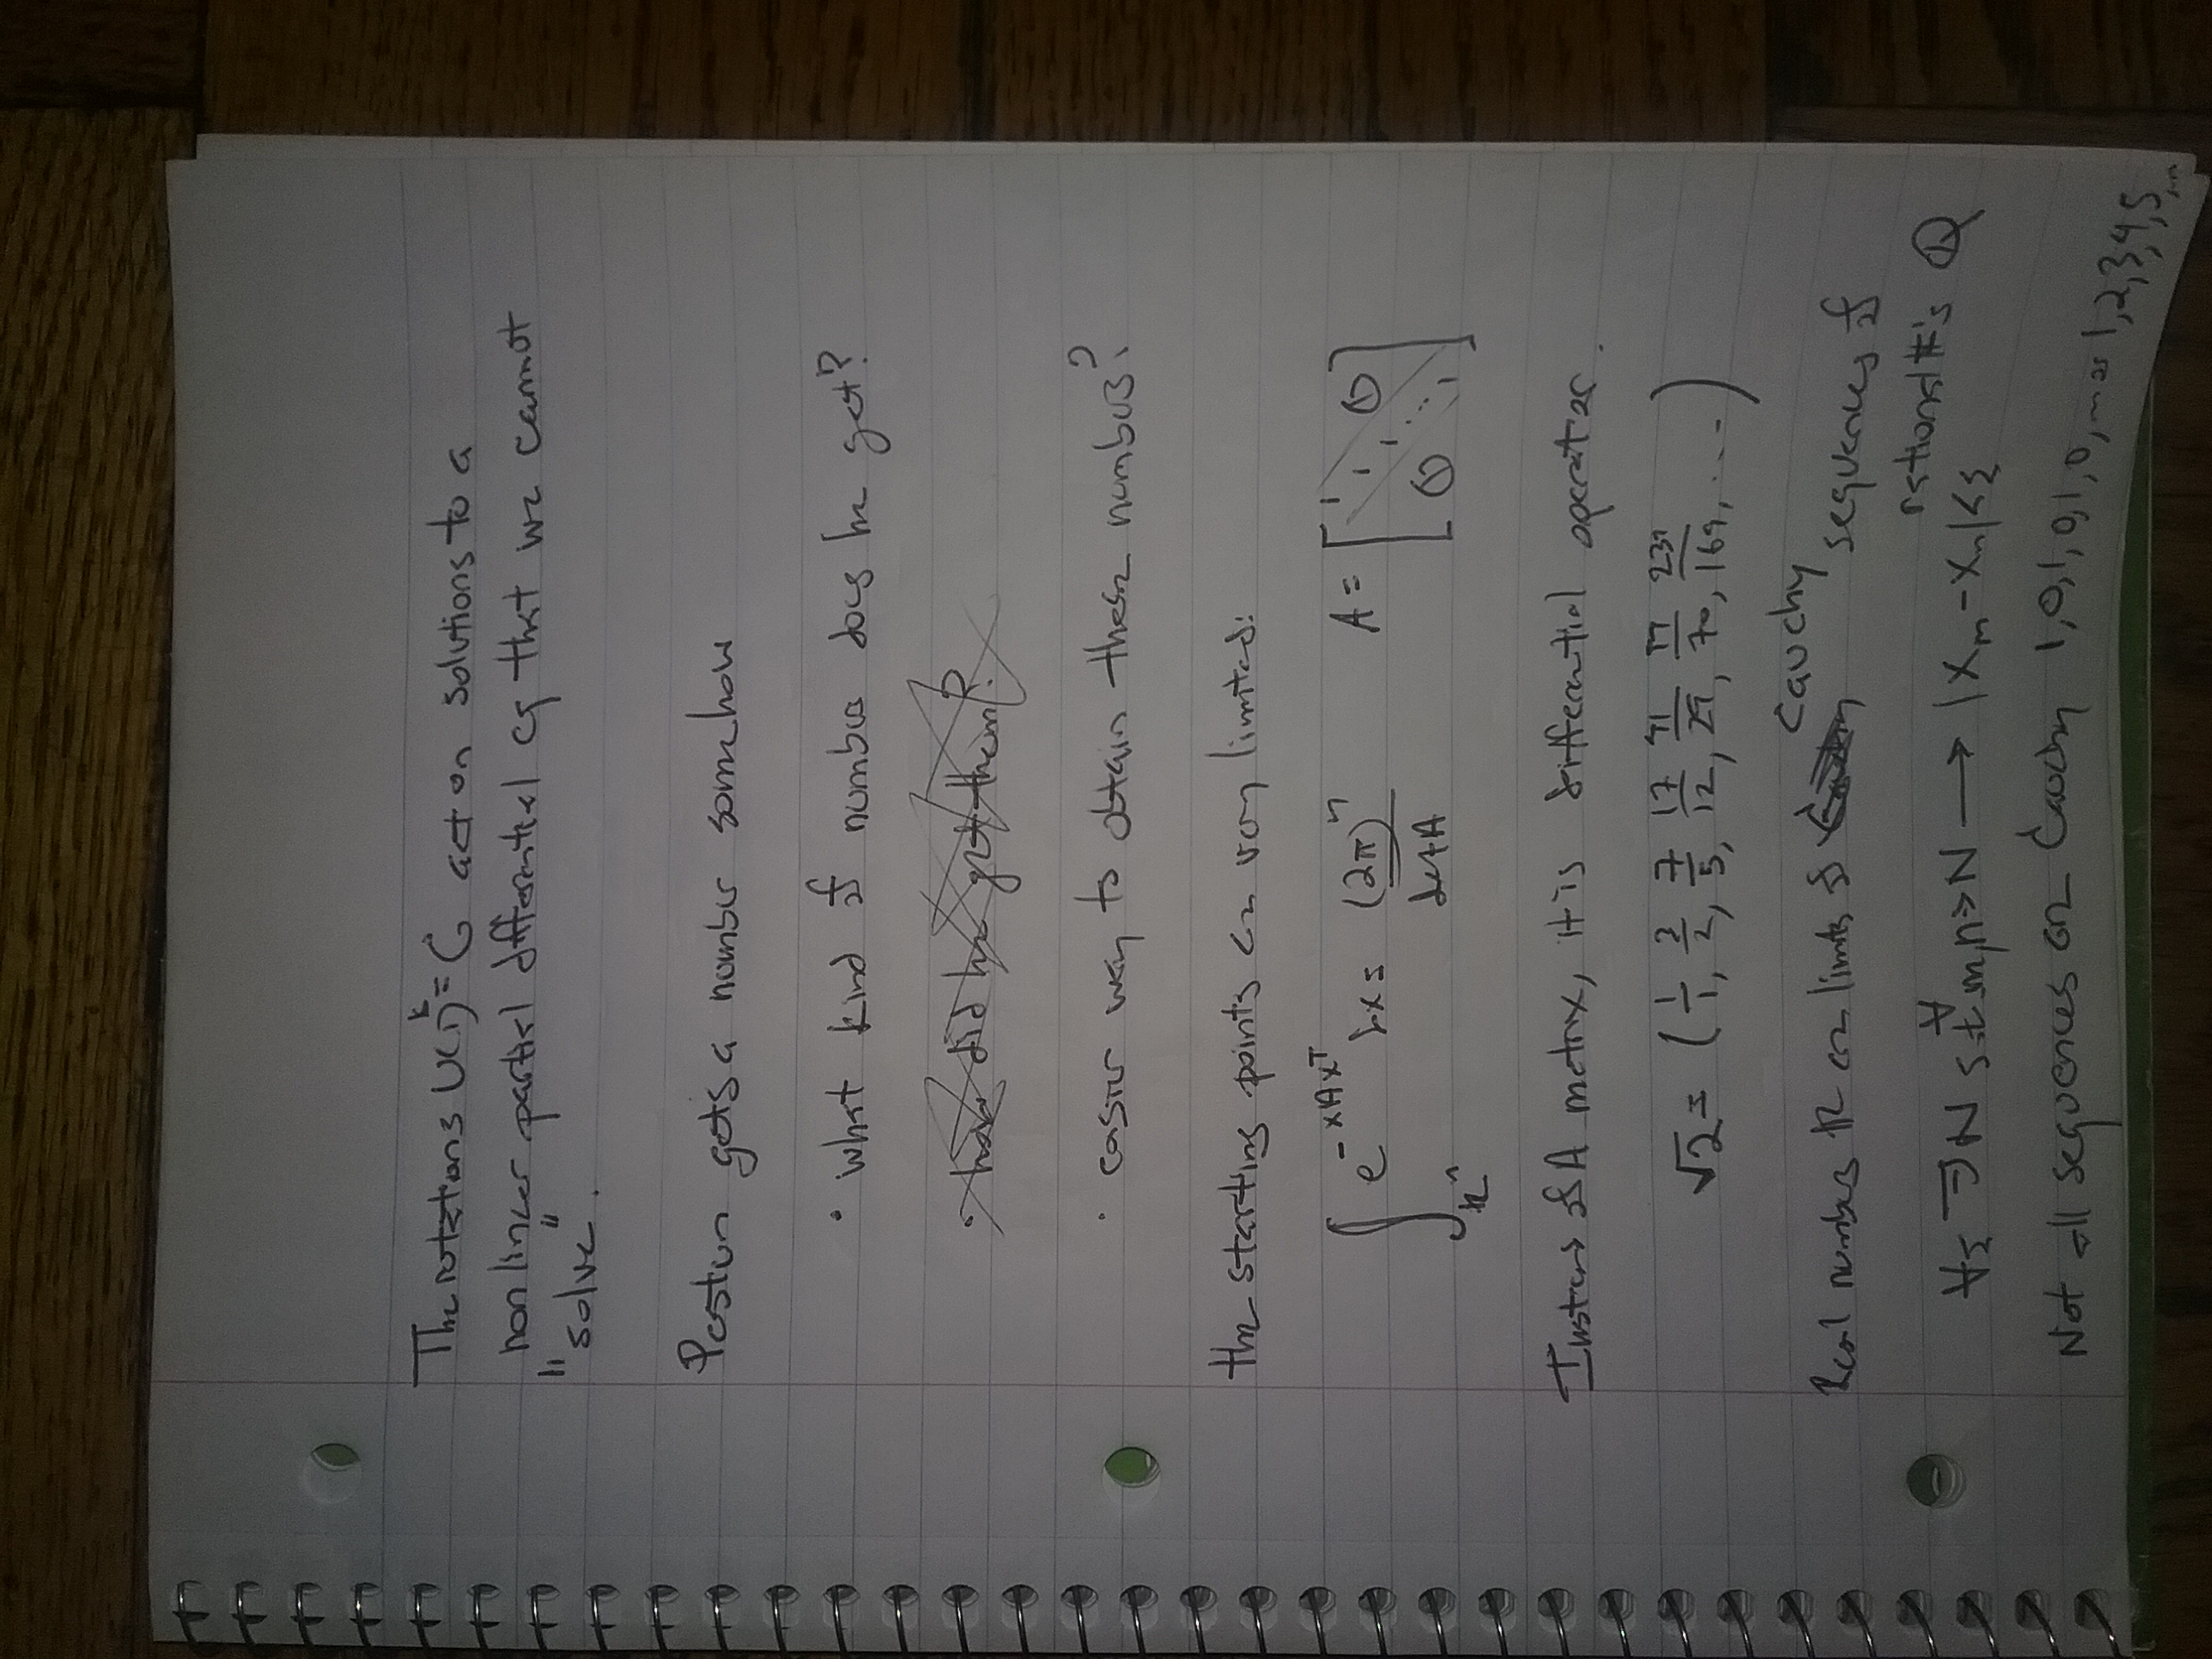 The rotations U(1)^k = G act on solutions to a
nonlinear partial differential eq that we cannot
"solve".
Pestun gets a number somehow
• what kind of number does he get?
• how did he get them?
• easier way to obtain these numbers?
the starting points are very limited:
∫_{R^n} e^{-xAx^T} dx = (2π)^n / det A    A = [1 1 1 ... 1 0 0]
Instead of A matrix, it is differential operator.
√2 = (1/1, 3/2, 7/5, 17/12, 41/29, 99/70, 239/169, ....)
Real numbers R are limits of Cauchy sequences of
rational #'s Q
∀ε ∃N s.t. ∀ m,n>N → |x_m - x_n| < ε
Not all sequences are Cauchy 1,0,1,0,1,0,1,0, m or 1,2,3,4,5,...